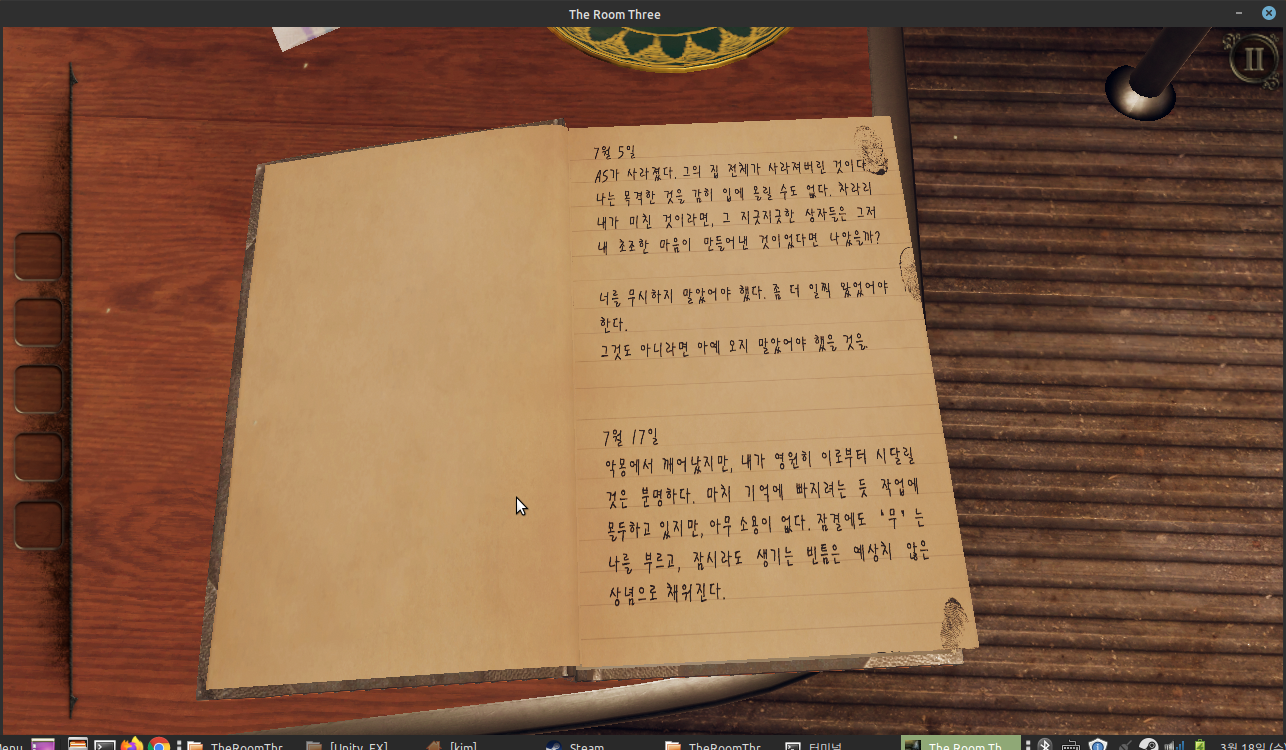 The Room Three
II
7월 5일
AS가 사라졌다. 그의 집 전체가 사라져버린 것이다.
나는 목격한 것을 감히 입에 올릴 수도 없다. 차라리
내가 미친 것이라면, 그 지긋지긋한 상자들은 그저
내 초조한 마음이 만들어낸 것이었다면 나았을까?
너를 무시하지 말았어야 했다. 좀 더 일찍 왔었어야
한다.
그것도 아니라면 아예 오지 말았어야 했을 것을.
7월 17일
악몽에서 깨어났지만, 내가 영원히 이로부터 시달릴
것은 분명하다. 마치 기억에 빠지려는 듯 작업에
몰두하고 있지만, 아무 소용이 없다. 잠결에도 '무' 는
나를 부르고, 잠시라도 생기는 빈틈은 예상치 않은
상념으로 채워진다.
Menu TheRoomThr [Unity_FX] [kim] Steam TheRoomThr 터미널 The Room Th 3월 18일